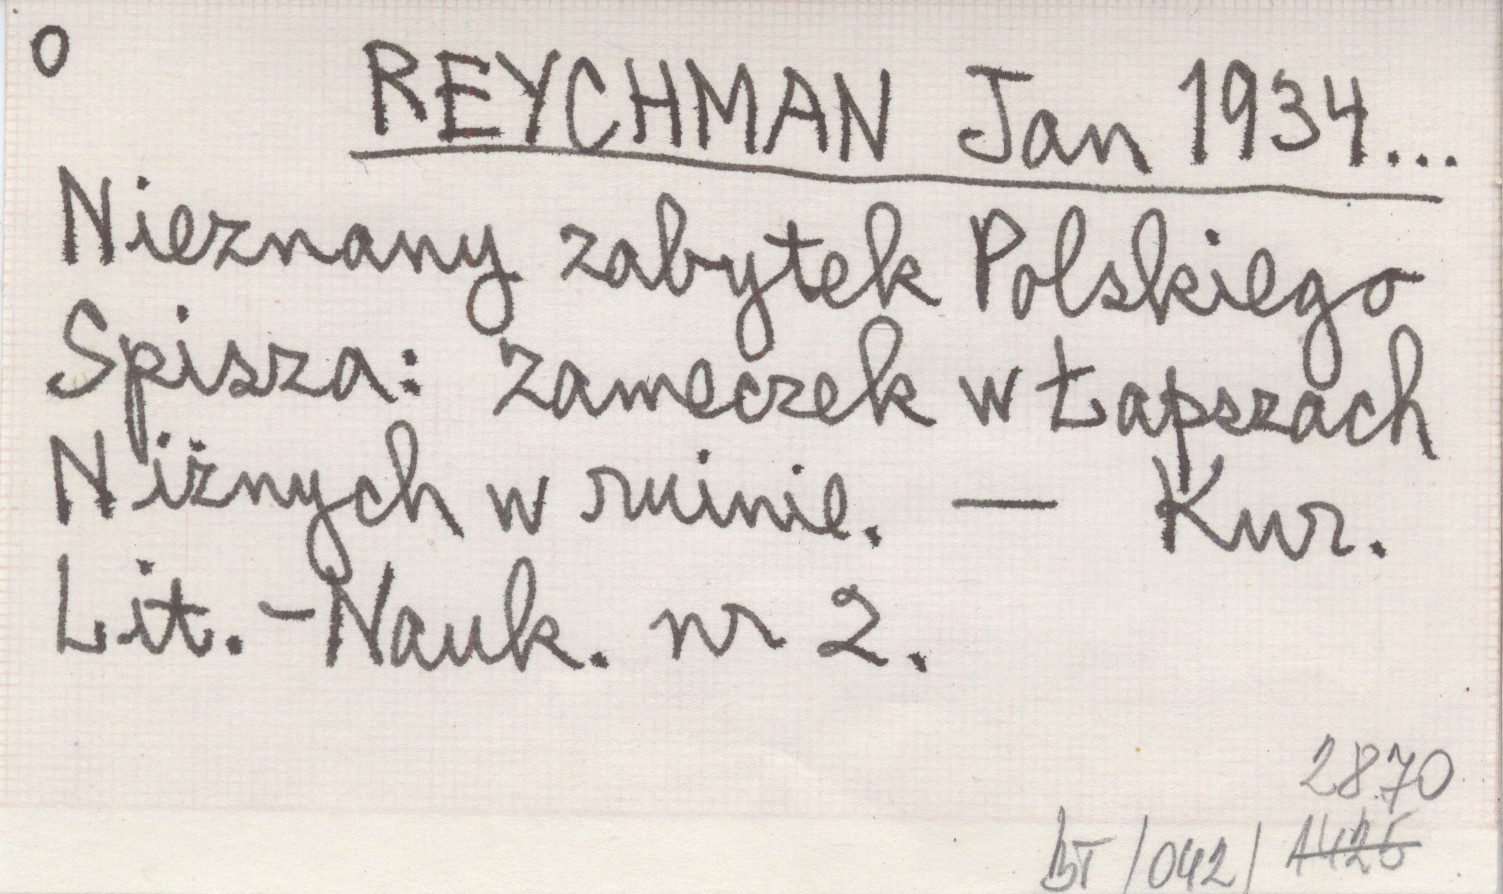 O
REYCHMAN Jan 1934...
Nieznany zabytek Polskiego
Spisza: zameczek w Łapszach
Niżnych w ruinie. — Kur.
Lit.-Nauk. nr 2.
2870
BT/042/ 1426